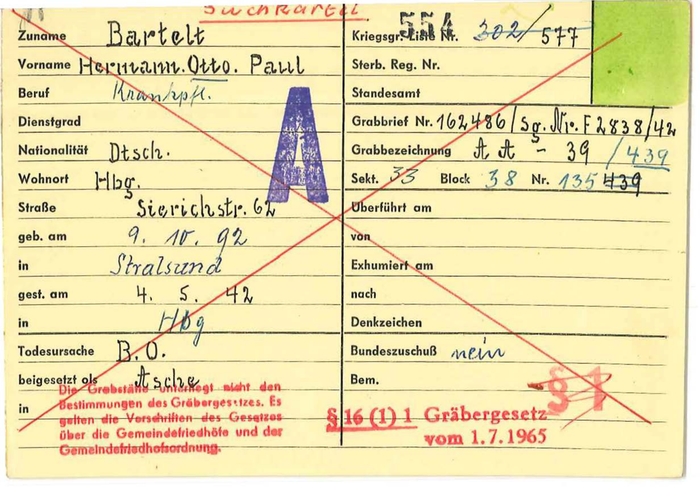 SUCHKARTEI
Zuname Bartelt
Vorname Hermann.Otto. Paul
Beruf Krankpfl.
Dienstgrad
Nationalität Dtsch.
Wohnort Hbg.
Straße Sierichstr. 62
geb. am 9. 10. 92
in Stralsund
gest. am 4. 5. 42
in Hbg
Todesursache B.O.
beigesetzt als Asche
in
Die Grabstätte unterliegt nicht den
Bestimmungen des Gräbergesetzes. Es
gelten die Vorschriften des Gesetzes
über die Gemeindefriedhöfe und der
Gemeindefriedhofsordnung.
A
554
Kriegsgr. Liste Nr. 302/577
Sterb. Reg. Nr.
Standesamt
Grabbrief Nr. 162486/Sg. Nr. F 2838/42
Grabbezeichnung A A - 39 /439
Sekt. 33 Block 38 Nr. 135 439
Überführt am
von
Exhumiert am
nach
Denkzeichen
Bundeszuschuß nein
Bem. § 1
§ 16 (1) 1 Gräbergesetz
vom 1.7.1965